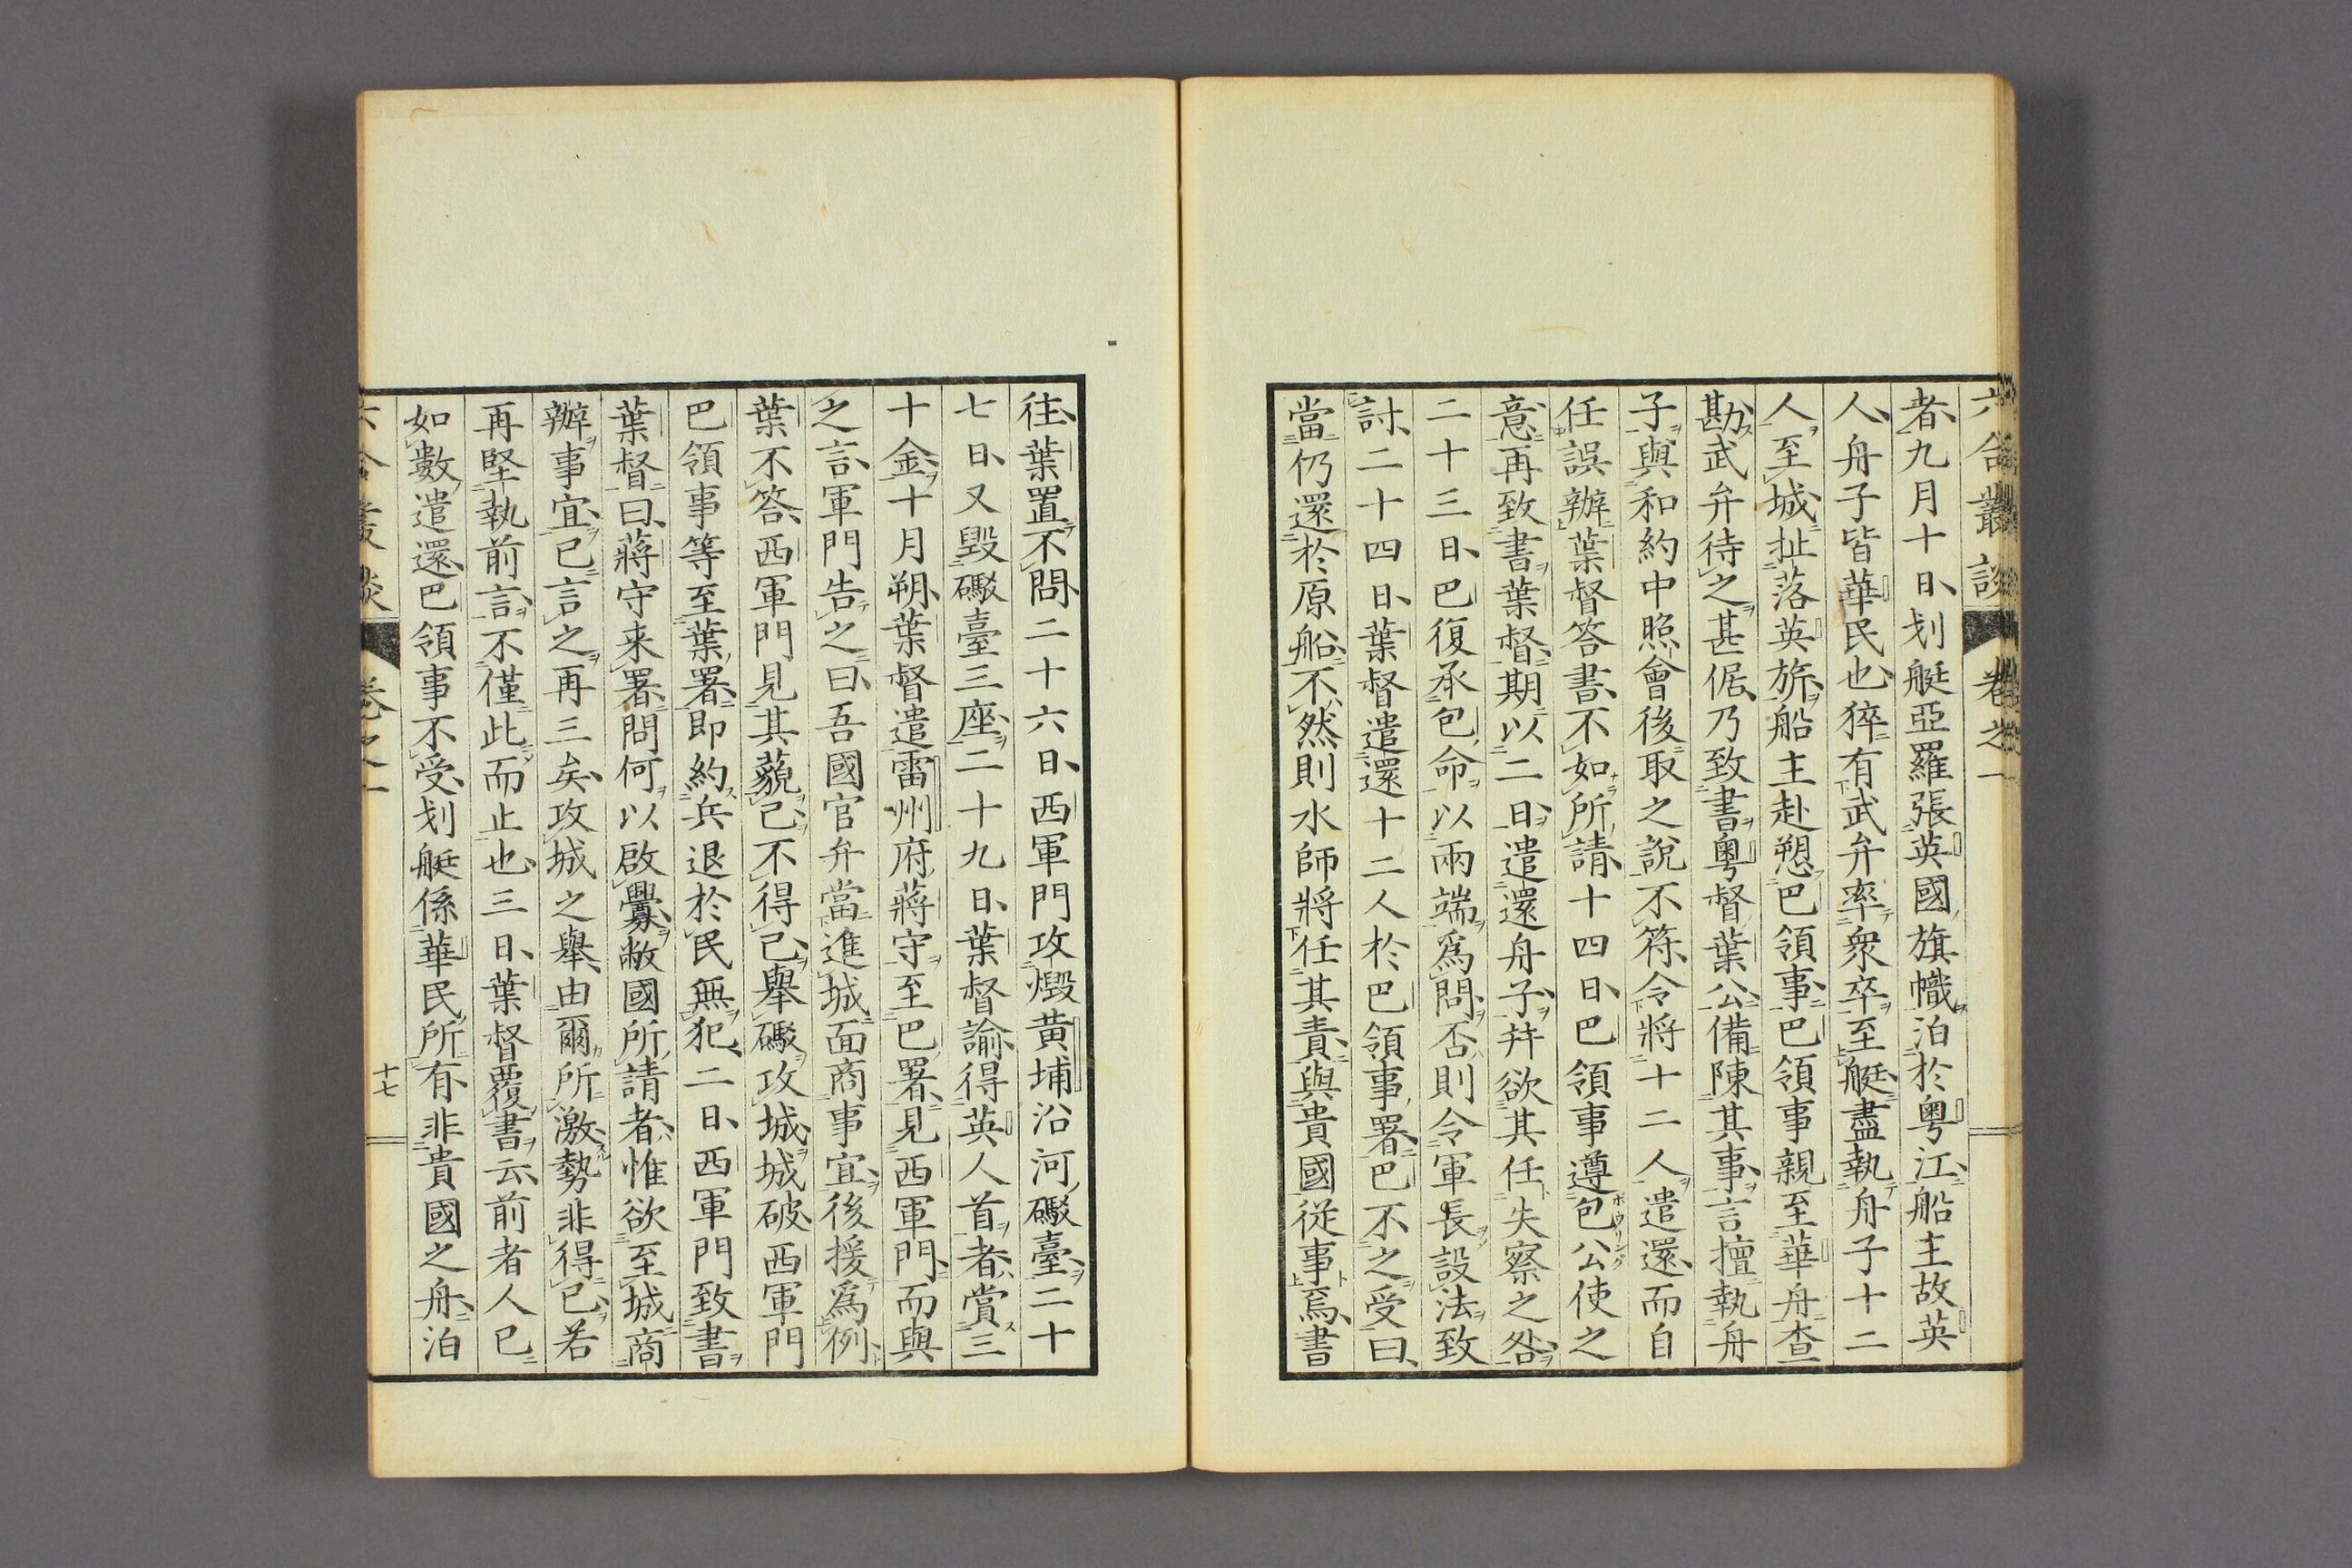 六合叢談 卷之一
者九月十日划艇亞羅張英國旗幟泊於粵江船主故英
人舟子皆華民也猝有武弁率眾卒至艇盡執舟子十二
人至城扯落英旂船主赴愬巴領事巴領事親至華舟查
勘武弁待之甚倨乃致書粵督葉公備陳其事言擅執舟
子與和約中照會後取之說不符令將十二人遣還而自
任誤辦葉督答書不如所請十四日巴領事遵包公使之
意再致書葉督期以二日遣還舟子幷欲其任失察之咎
二十三日巴復承包命以兩端爲問否則令軍長設法致
討二十四日葉督遣還十二人於巴領事署巴不之受曰
當仍還於原船不然則水師將任其責與貴國從事焉書
往葉置不問二十六日西軍門攻燬黃埔沿河礮臺二十
七日又毀礮臺三座二十九日葉督諭得英人首者賞三
十金十月朔葉督遣雷州府蔣守至巴署見西軍門而與
之言軍門告之曰吾國官弁當進城面商事宜後援爲例
葉不答西軍門見其藐己不得已舉礮攻城城破西軍門
巴領事等至葉署即約兵退於民無犯二日西軍門致書
葉督曰蔣守来署問何以啟釁敝國所請者惟欲至城商
辦事宜已言之再三矣攻城之舉由爾所激勢非得已若
再堅執前言不僅此而止也三日葉督覆書云前者人已
如數遣還巴領事不受划艇係華民所有非貴國之舟泊
六合叢談 卷之一 十七